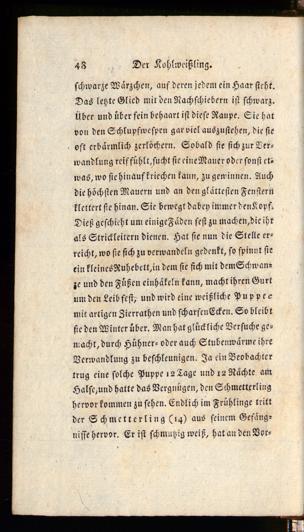 48 Der Kohlweißling.
schwarze Wärzchen, auf deren jedem ein Haar steht.
Das letzte Glied mit den Nachschiebern ist schwarz.
Über und über fein behaart ist diese Raupe. Sie hat
von den Schlupfwespen gar viel auszustehen, die sie
oft erbärmlich zerlöchern. Sobald sie sich zur Ver-
wandlung reif fühlt, sucht sie eine Mauer oder sonst et-
was, wo sie hinauf kriechen kann, zu gewinnen. Auch
die höchsten Mauern und an den glättesten Fenstern
klettert sie hinan. Sie bewegt dabey immer den Kopf.
Dieß geschieht um einige Fäden fest zu machen, die ihr
als Strickleitern dienen. Hat sie nun die Stelle er-
reicht, wo sie sich zu verwandeln gedenkt, so spinnt sie
ein kleines Ruhebett, in dem sie sich mit dem Schwan-
ze und den Füßen einhäkeln kann, macht ihren Gurt
um den Leib fest; und wird eine weißliche Puppe
mit artigen Zierrathen und scharfen Ecken. So bleibt
sie den Winter über. Man hat glückliche Versuche ge-
macht, durch Hühner- oder auch Stubenwärme ihre
Verwandlung zu beschleunigen. Ja ein Beobachter
trug eine solche Puppe 12 Tage und 12 Nächte am
Halse, und hatte das Vergnügen, den Schmetterling
hervor kommen zu sehen. Endlich im Frühlinge tritt
der Schmetterling (14) aus seinem Gefäng-
nisse hervor. Er ist schmutzig weiß, hat an den Vor-